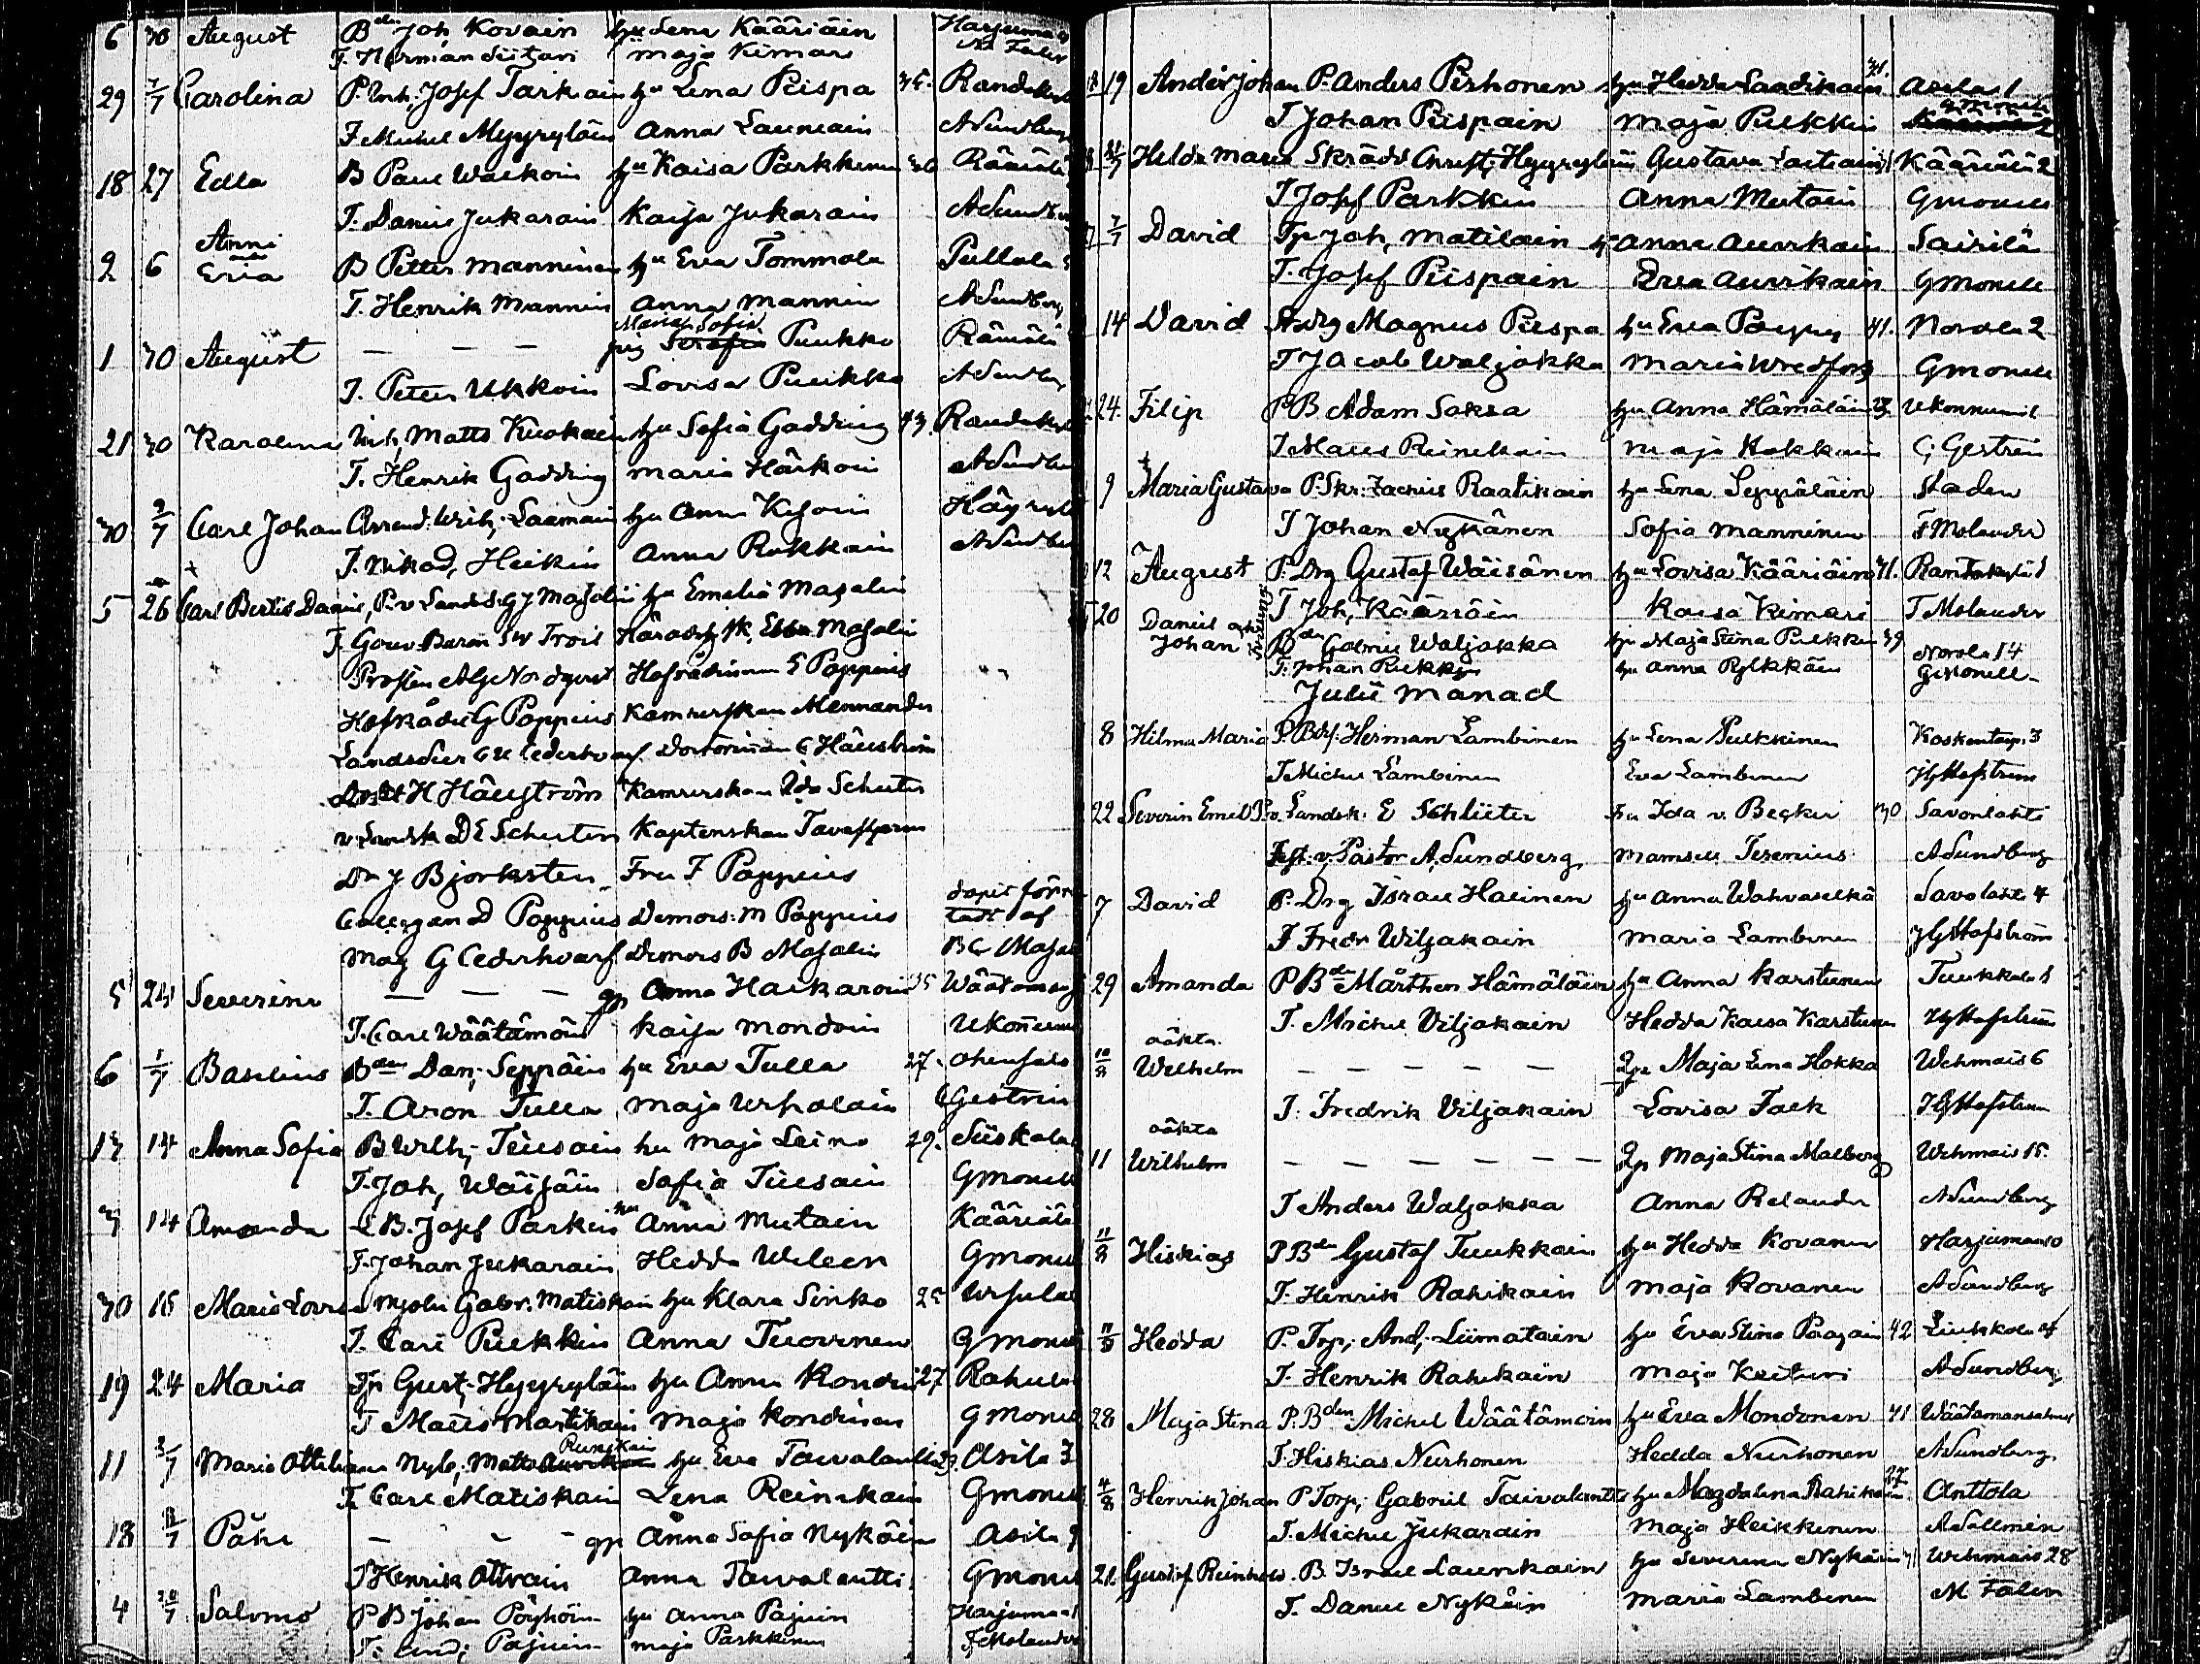 6 30 August B:den Joh, Kovain hu Lena Kääriäin Harjuma
T. Herman Siitari maja Kimar
29 7/7 Carolina P. Inh. Josef Tarkain hu Lena Piispa 36. Randak
T Michel Myyryläin Anna Launiain A Sundberg
18 27 Edla B Paul Waikoin hu Kaisa Parkkinen 36 Rämälä
T. Daniel Jukarain Kaisa Jukarain A Sundb
2 6 Anni och Eria B Petter Manninen hu Eva Tommola Pullala
T. Henrik Mannin Anna mannin A Sundberg
Maria Sofia
1 30 August — — — pig Puukko Rämälä
T. Petter Ukkoin Lovisa Puukko A Sundberg
21 30 Karolina Inh, Matts Kuokain hu Sofia Gadding 43. Randak
T. Henrik Gadding maria Härkoin A Sundb
30 2/7 Carl Johan Arrend. Wilh, Laamain hu Anna Häyryl
+ T. Nikod, Heikin Anna Rukkain A Sundb
5 26 Carl Bertis Daniel, P. v Landsk. G J Masalin hu Emelia Masalin
T. Gouv Baron S W Troil Häradshfsk, Ebba Masalin
Prosten A G Nordqvist Hofrådinnan S Poppius
Hofrådet G Poppius Kamrerskan Mennander
Landssecr C U Cederhvarf Doktorinnan C Häuström
Dokt H Häuström Kamrerskan Ida Schulten
v. Landsk D E Schulten Kaptenskan Tavaststjerna
Dr J Björksten Fru F Poppius
Collegan D Poppius Demois: M Poppius dopet förr
Mag G Cederhvarf Demois B Masalin tadt af B C Masal
5 24 Severin — — — gp Anna Haikaroin 35 Wäätämä
T. Carl Wäätämöin Kaija mondoin Ukonn
6 1/7 Basilius B:den Dan, Seppäin hu Eva Tulla 27. ohens
T. Aron Tulla maja Urholain C Gestrin
13 14 Anna Sofia B Wilh, Tiusain hu maja Leino 29. Siiskala
T. Joh, Wäisäin Sofia Tiusain G monell
3 14 Amanda B. Josef Parkin hu Anna mutain Kääriälä
T. Johan Jukarain Hedda Wileen G monell
30 16 Maria Lovisa mjöln Gabr. Matiskain hu Klara Sinko 25 Ursula
T. Carl Pulkkin Anna Tuovinen G monell
19 24 Maria Tp Gust, Hyyryläin hu Anna Kondri 27 Rahula
T Matts Martikain maja Kondrinen G monell
Runikain
11 3/7 Maria Ottiliana Nyb, Matts hu Eva Taivalantti 39. Asila 3
T. Carl Matiskain Lena Reinikain G monell
18 11/7 Pähr — — — gp Anna Sofia Nykäin Asila 9
T Henrik Ottvain Anna Taivalantti G monell
4 20/7 Salomo P B Johan Pöyhöin hu Anna Pajuin Harjuma
T. And, Pajuin maja Parkkinen F Molander
18 19 Anders Johan P. Anders Pirhonen hu Hedda Laadikain 31. Asila 1
T Johan Piispain maja Pulkkin G monell
8 21/7 Hilda maria Skrädd Christ, Hyyryläin Gustava Laitiain 31 Kääriälä 2
T Josef Parkkin Anna Mutain G monell
7/7 David Tp Joh, matilain hu anna Auvikain Sairilä
T. Josef Piispain Eva Auvikain G monell
14 David Drg Magnus Piispa hu Eva Pöyry 41. Norola 2
T Jacob Waljakka Maria Wredfors G monell
24. Filip P B Adam Saksa hu. Anna Hämäläin 29. Ukonniemi
T Matts Reinikain maja Hokkain C, Gestrin
+
9 Maria Gustava P. Skr. Zachris Raatikain hu Lena Seppäläin Staden
T Johan Nykänen Sofia manninen F Molander
12 August P. Drg Gustaf Wäisänen hu Lovisa Kääriäin 41. Rantakylä 1
T Joh, Kääriäin Kaisa Kimari F Molander
20 Daniel och Johan B:den Gabriel Waljakka hu Maja Stina Pulkkin 39 Norola 14
T. Johan Pulkkin hu Anna Pylkkäin G Monell
Julii månad
8 Hilma Maria P. B:dsf. Herman Lambinen hu Lena Pulkkinen Koskentaip. 3
T Michel Lambinen Eva Lambinen J G Hofström
22 Severin Emil P. v. Landsk. E Schlüter Fru Ida v. Becker 30 Savonlahti
Test. v, Pastor A, Sundberg, mamsell Teremius A Sundberg
7 David P. Drg Israel Halinen hu Anna Wahvaselkä Savolaht 4
T Fredr Wiljakain maria Lambinen J G Hofström
29 Amanda P B:de Mårthen Hämäläin hu Anna Karstunen Tuukkala 8
T. Michel Viljakain Hedda Kaisa Karstunen J G Hofström
oäkta
10/8 Wilhelm — — — — — Qp Maja Lena Hokka Wehmais 6
T. Fredrik Viljakain Lovisa Falk J G Hofström
oäkta
11 Wilhelm — — — — — — Qp Maja Stina Malberg Wehmais 15.
T Anders Waljakka Anna Relander A Sundberg
11/8 Hiskias P B:den Gustaf Tuukkain hu Hedda Kovanen Harjumaa 10
T. Henrik Rahikain maja Kovanen A Sundberg
11/8 Hedda P. Torp, And, Liimatain hu Eva Stina Paajain 42 Liukkola 4
T. Henrik Rahikain Maja Keituri A Sundberg
28 Maja Stina P. B:den Michel Wäätämöin hu Eva Mondonen 41 Wäätämänsalmi
T. Hiskias Nurhonen Hedda Nurhonen A Sundberg
4/8 Henrik Johan P Torp, Gabriel Taivalantti hu Magdalena Rahikain 27. Anttola
T. Michel Jukarain maja Heikkinen A Sallmén
21 Gustaf Reinhold. B. Israel Laurikain hu Severina Nykäin 41 Wehmais 28
T. Daniel Nykäin maria Lambinen M Falin